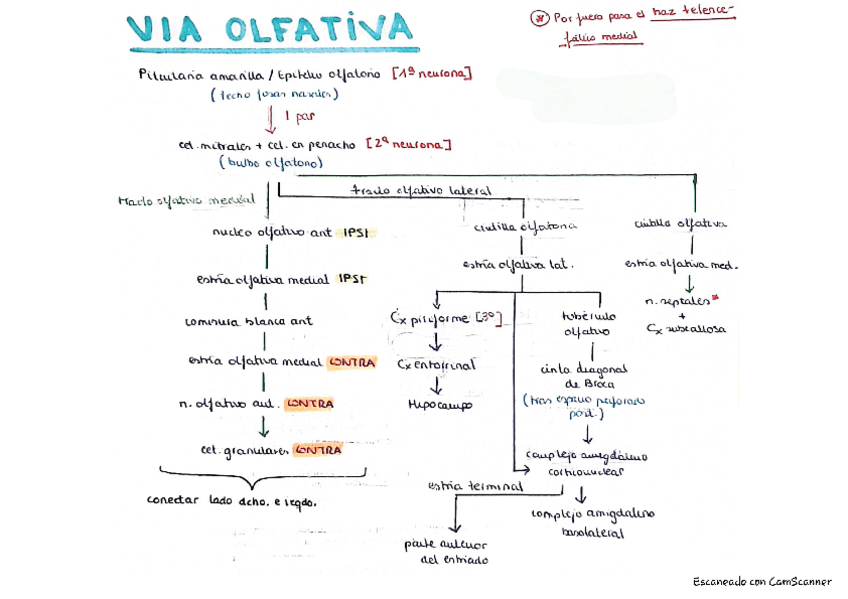 VIA OLFATIVA
* Por fuera para el haz telence-
fálico medial
Pituitaria amarilla / Epitelio olfatorio [1ª neurona]
(techo fosas nasales)
I par
cel. mitrales + cel. en penacho [2ª neurona]
(bulbo olfatorio)
tracto olfativo medial
tracto olfativo lateral
nucleo olfativo ant IPSI
estría olfativa medial IPSI
comisura blanca ant
estría olfativa medial CONTRA
n. olfativo ant. CONTRA
cel. granulares CONTRA
conectar lado dcho. e izqdo.
cintilla olfatoria
estría olfativa lat.
Cx piriforme [3ª]
Cx entorrinal
Hipocampo
tubérculo
olfativo
cinta diagonal
de Broca
(tras espacio perforado
post.)
complejo amigdalino
corticonuclear
estría terminal
parte anterior
del estriado
complejo amigdalino
basolateral
cintilla olfativa
estría olfativa med.
n. septales *
+
Cx subcallosa
Escaneado con CamScanner